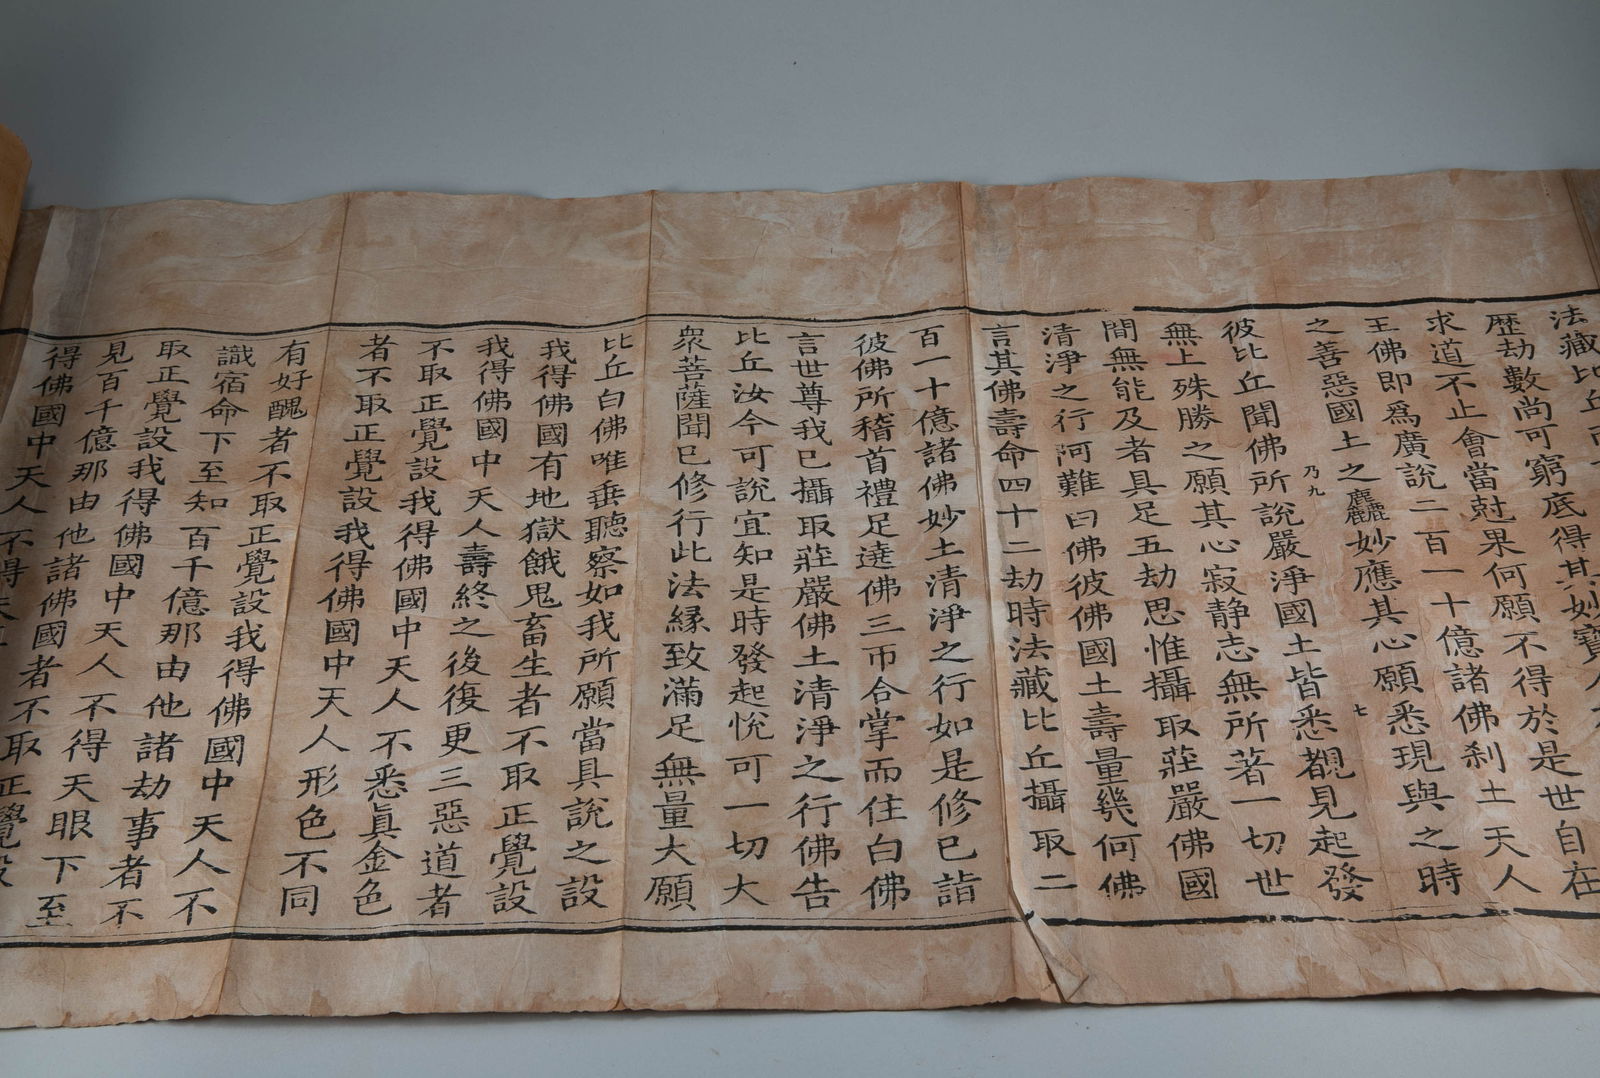 法藏比丘
歷劫數尚可窮底得其妙寶人
求道不止會當尅果何願不得於是世自在
王佛即為廣說二百一十億諸佛刹土天人
之善惡國土之麤妙應其心願悉現與之時
乃九
七
彼比丘聞佛所說嚴淨國土皆悉覩見起發
無上殊勝之願其心寂静志無所著一切世
間無能及者具足五劫思惟攝取莊嚴佛國
清淨之行阿難曰佛彼佛國土壽量幾何佛
言其佛壽命四十二劫時法藏比丘攝取二
百一十億諸佛妙土清淨之行如是修已詣
彼佛所稽首禮足遶佛三帀合掌而住白佛
言世尊我已攝取莊嚴佛土清淨之行佛告
比丘汝今可說宜知是時發起悅可一切大
衆菩薩聞已修行此法緣致滿足無量大願
比丘白佛唯垂聽察如我所願當具說之設
我得佛國有地獄餓鬼畜生者不取正覺設
我得佛國中天人壽終之後復更三惡道者
不取正覺設我得佛國中天人不悉真金色
者不取正覺設我得佛國中天人形色不同
有好醜者不取正覺設我得佛國中天人不
識宿命下至知百千億那由他諸劫事者不
取正覺設我得佛國中天人不得天眼下至
見百千億那由他諸佛國者不取正覺設
得佛國中天人不得天